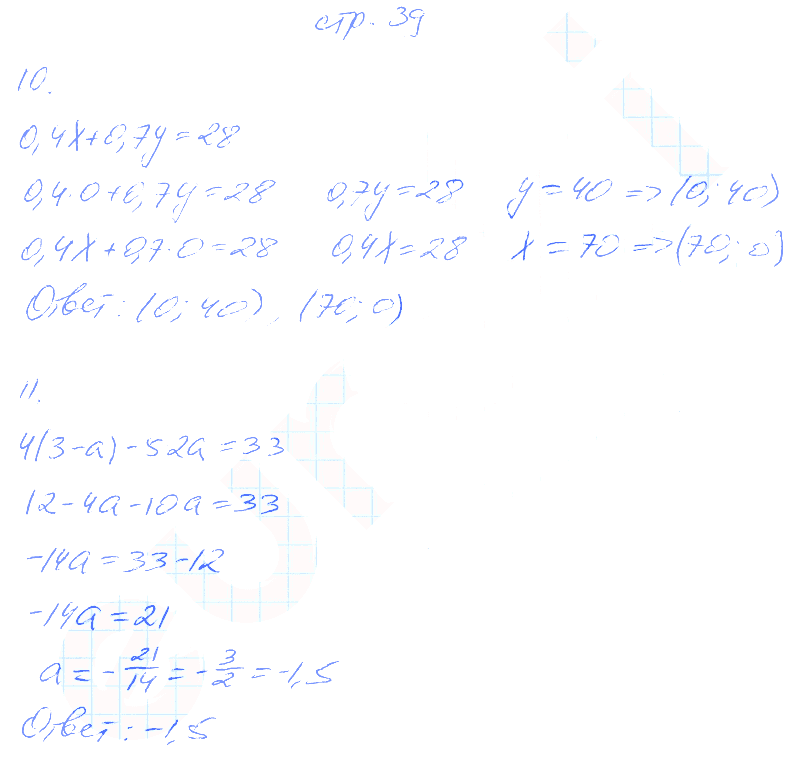 стр. 39
10.
0,4x+0,7y=28
0,4·0+0,7y=28 0,7y=28 y=40 => (0; 40)
0,4x+0,7·0=28 0,4x=28 x=70 => (70; 0)
Ответ: (0; 40), (70; 0)
11.
4(3-a)-52a=33
12-4a-10a=33
-14a=33-12
-14a=21
a=-21/14=-3/2=-1,5
Ответ: -1,5